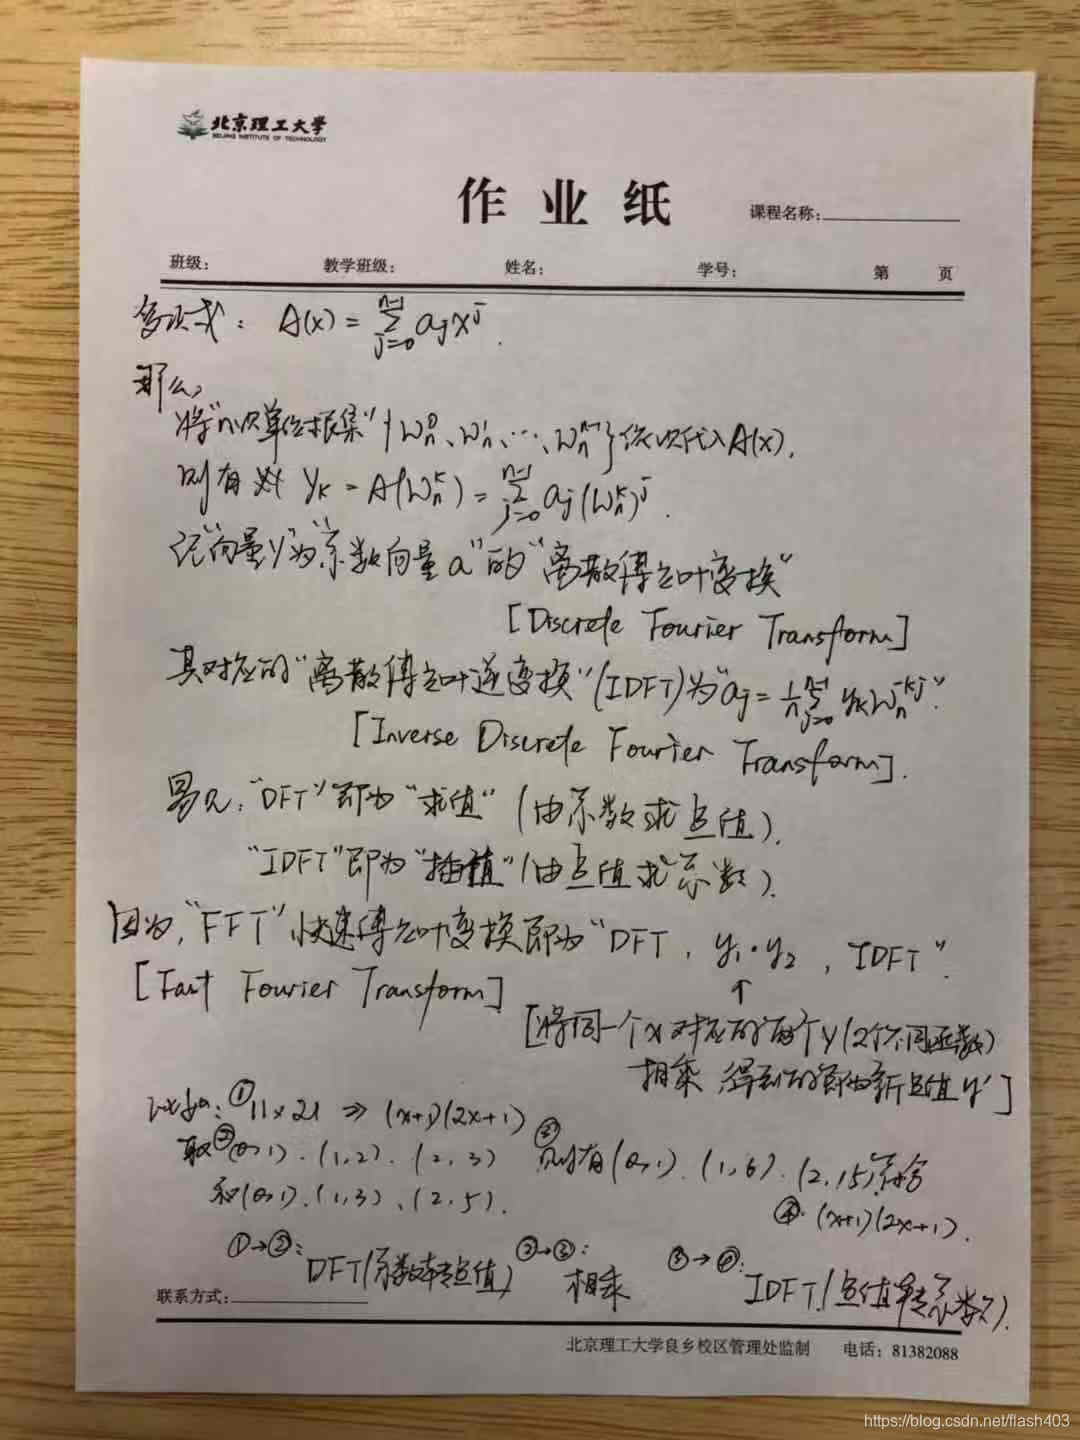 北京理工大学
BEIJING INSTITUTE OF TECHNOLOGY
作业纸
课程名称:
班级: 教学班级: 姓名: 学号: 第 页
多项式: A(x) = \sum_{j=0}^{n-1} a_j x^j.
那么,
将"n次单位根集"{W_n^0、W_n^1、…、W_n^{n-1}}依次代入A(x),
则有 y_k = A(W_n^k) = \sum_{j=0}^{n-1} a_j (W_n^k)^j.
记"向量y"为"系数向量a"的"离散傅立叶变换"
[Discrete Fourier Transform]
其对应的"离散傅立叶逆变换"(IDFT)为"a_j = \frac{1}{n} \sum_{j=0}^{n-1} y_k W_n^{-kj}".
[Inverse Discrete Fourier Transform].
易见:"DFT"即为"求值"(由系数求点值).
"IDFT"即为"插值"(由点值求系数).
因为,"FFT"快速傅立叶变换即为"DFT, y_1·y_2, IDFT".
[Fast Fourier Transform]
↑
[将同一个x对应的两个y(2个不同函数)
相乘 得到的即为新点值y']
比如: ①11×21 => (x+1)(2x+1)
取②(0,1).(1,2).(2,3) ③则有(0,1).(1,6).(2,15)符合
和(0,1).(1,3).(2,5). ④.(x+1)(2x+1).
①→②: DFT(系数转点值) ②→③: 相乘 ③→④: IDFT.(点值转系数).
联系方式:
北京理工大学良乡校区管理处监制 电话: 81382088
https://blog.csdn.net/flash403